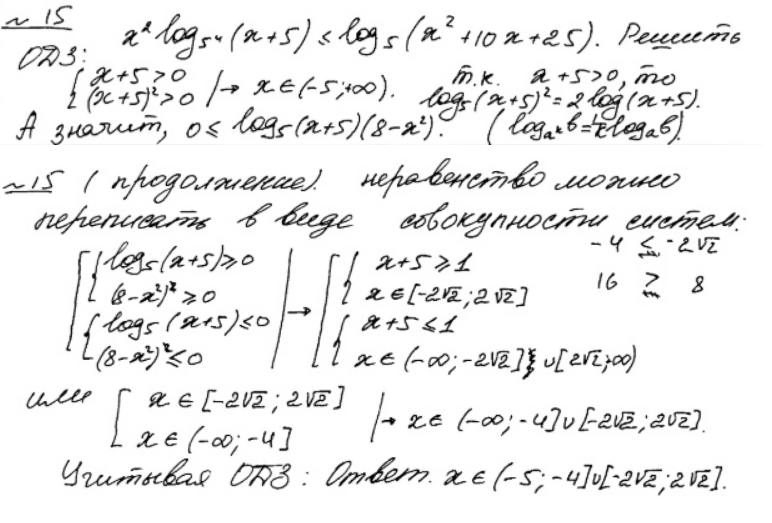 № 15 x² log₅₄(x+5) ≤ log₅(x²+10x+25). Решить
ОДЗ:
{ x+5>0
{ (x+5)²>0 |→ x∈(-5;+∞). т.к. x+5>0, то
log₅(x+5)²=2log(x+5).
А значит, 0 ≤ log₅(x+5)(8-x²). (log_{aᵏ}b=1/k log_a b).
№15 (продолжение). неравенство можно
переписать в виде совокупности систем:
[ { log₅(x+5)≥0 | → [ { x+5≥1 -4 ≤ -2√2
{ (8-x²)≥0 { x∈[-2√2;2√2] 16 ≥ 8
{ log₅(x+5)≤0 { x+5≤1
{ (8-x²)≤0 { x∈(-∞;-2√2]∪[2√2;+∞)
или [ x∈[-2√2;2√2]
[ x∈(-∞;-4] |→ x∈(-∞;-4]∪[-2√2;2√2].
Учитывая ОДЗ: Ответ. x∈(-5;-4]∪[-2√2;2√2].